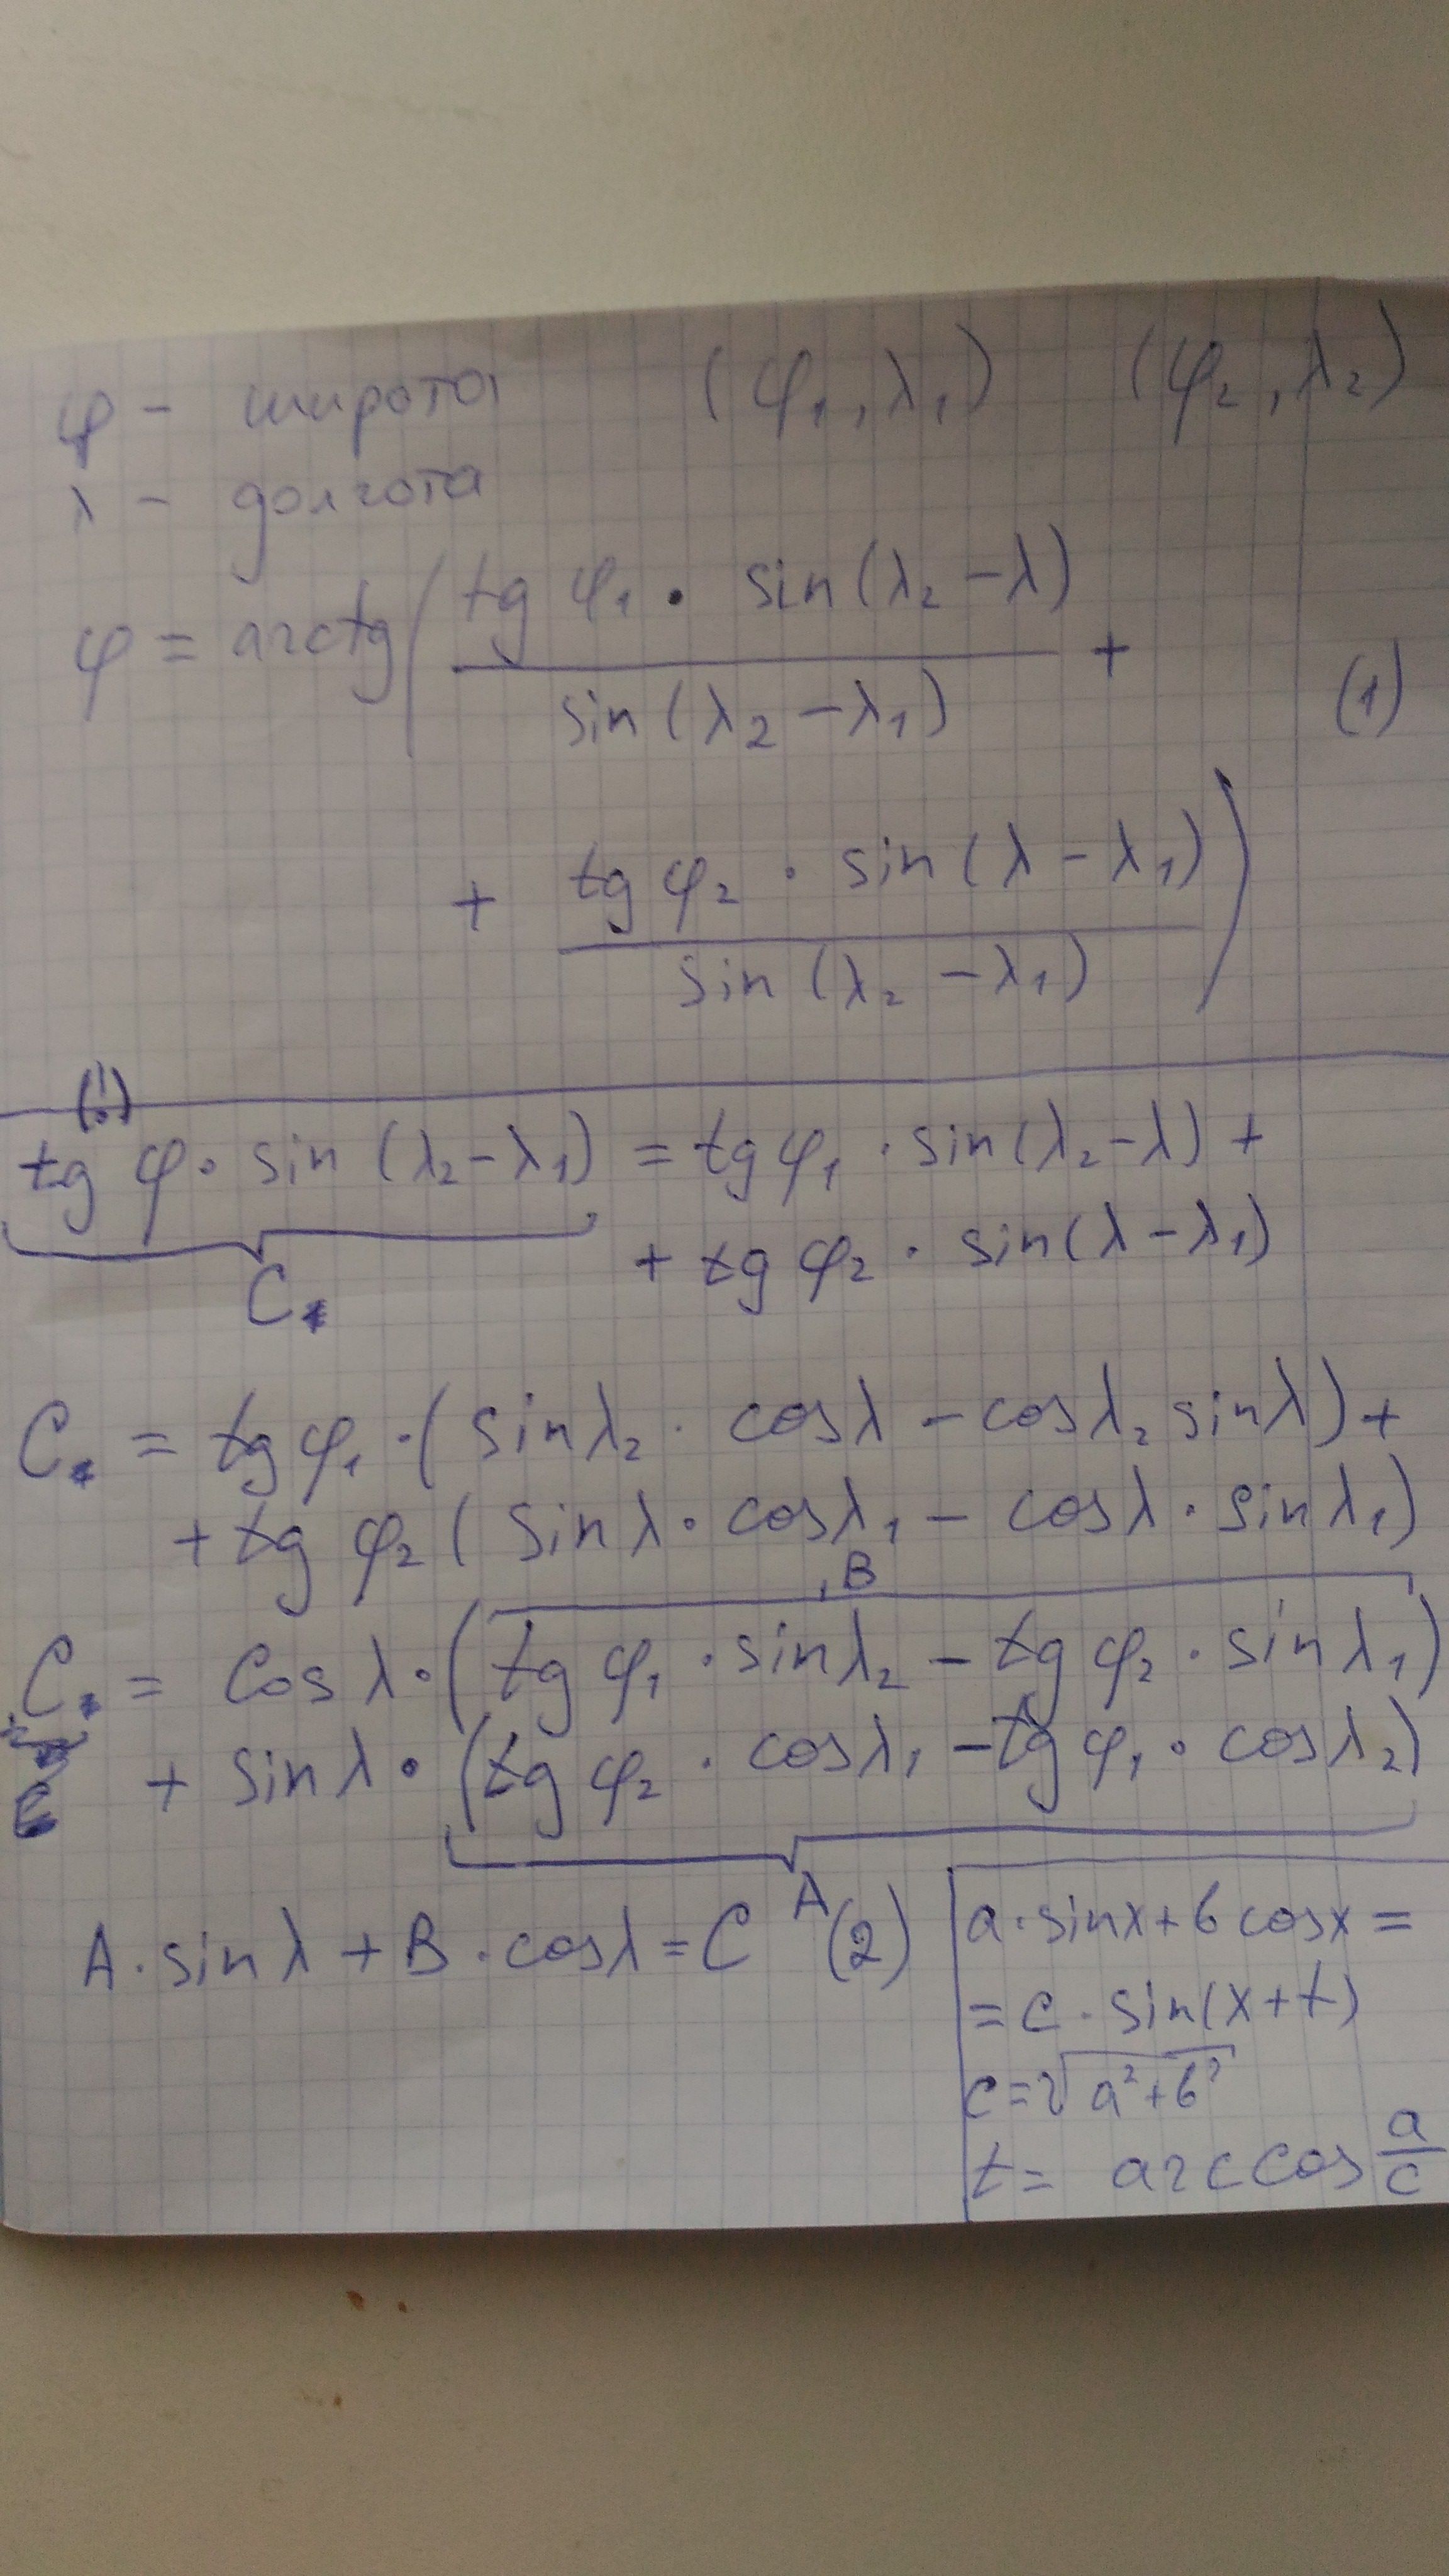 φ – широта (φ₁, λ₁) (φ₂, λ₂)
λ – долгота
φ = arctg( tg φ₁ · sin(λ₂ – λ) / sin(λ₂ – λ₁) + (1)
+ tg φ₂ · sin(λ – λ₁) / sin(λ₂ – λ₁) )
tg φ · sin(λ₂ – λ₁) = tg φ₁ · sin(λ₂ – λ) +
+ tg φ₂ · sin(λ – λ₁)
C*
C* = tg φ₁ · ( sinλ₂ · cosλ – cosλ₂ sinλ) +
+ tg φ₂ ( sinλ · cosλ₁ – cosλ · sinλ₁)
B
C* = cosλ · (tg φ₁ · sinλ₂ – tg φ₂ · sinλ₁)
+ sinλ · (tg φ₂ · cosλ₁ – tg φ₁ · cosλ₂)
A
A · sinλ + B · cosλ = C (2)
a · sinx + b cosx =
= c · sin(x + t)
c = √a² + b²
t = arccos a/c